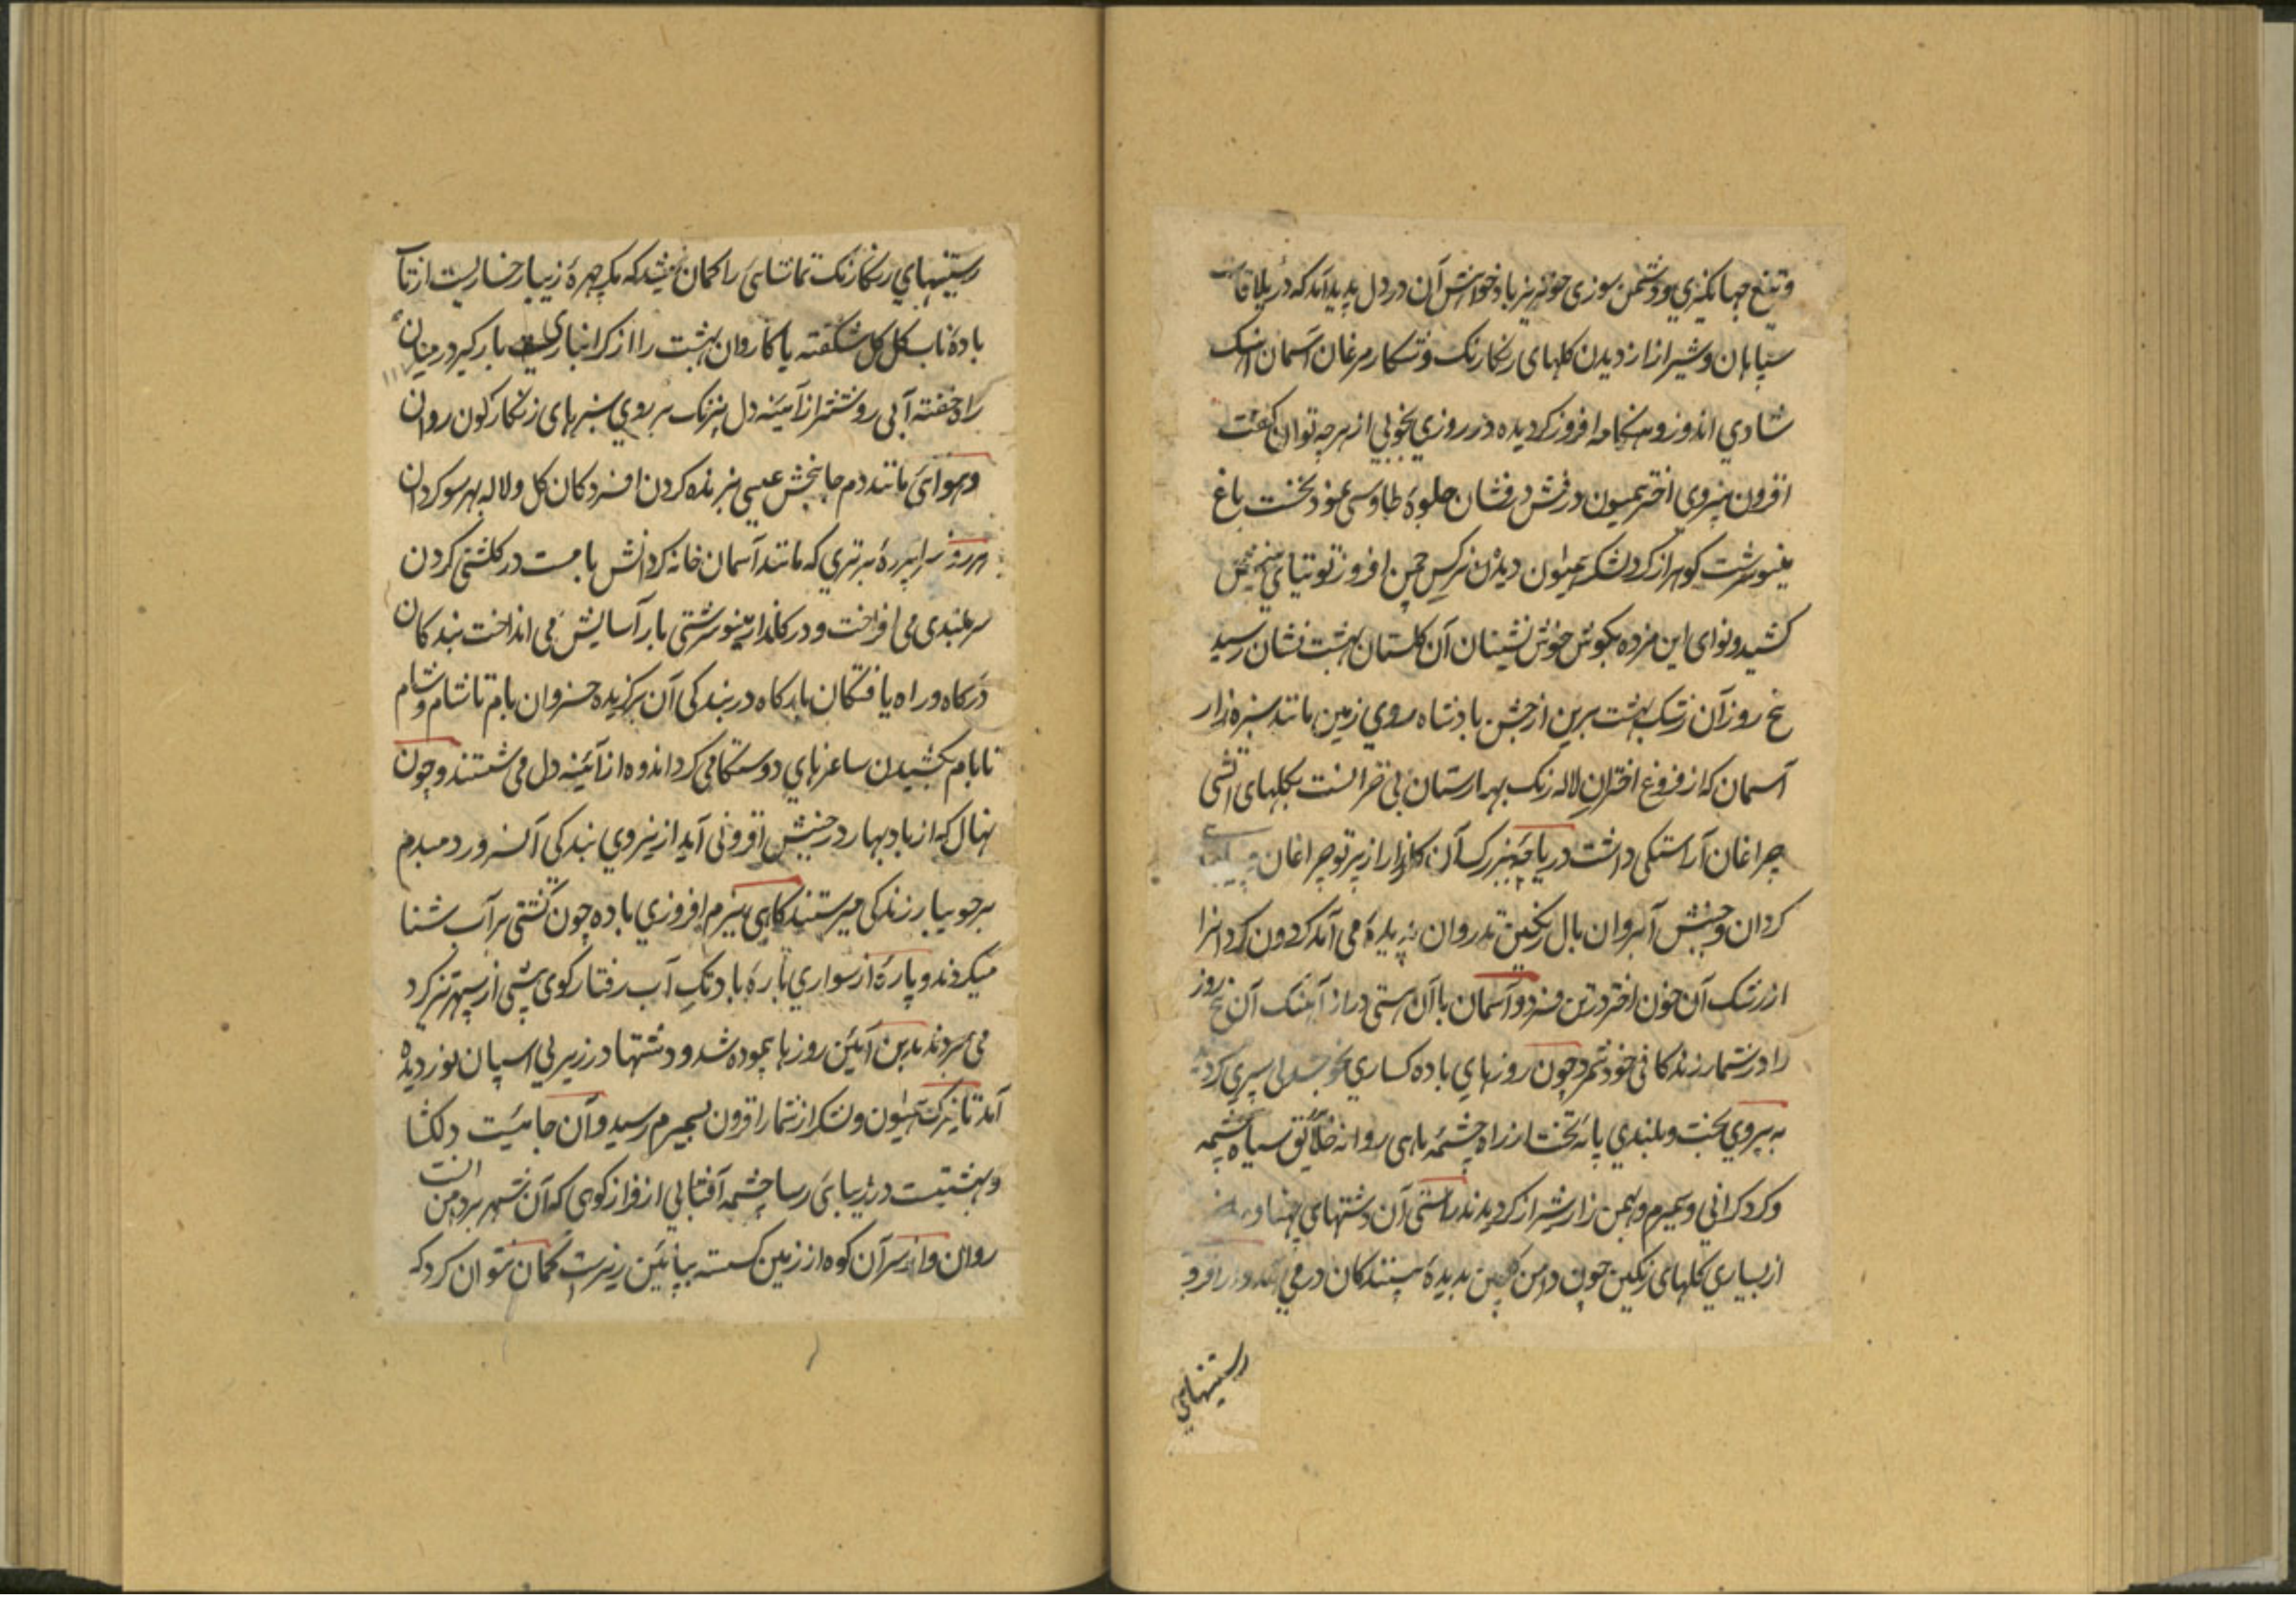 وتیغ جهانگیری و دشمن سوزی خونریز باد خواهش آن در دل پدید آمد که در ییلاقات
سپاهان و شیراز از دیدن کلهای رنکارنک و شکار مرغان آسمان آهنک
شادی اندوز و هنکامه افروز کردیده در روزی بخوبی از هرچه توان گفت
افزون بنیروی اختر همیون درفش درفشان جلوهٔ طاوسی نمود نخست باغ
مینو سرشت کوهر از کرد لشکر همیون دیدن نرکس چمن افروز توتیای
کشید و نوای این مژده بکوش خوش نشینان آن کلستان بهشت نشان رسید
پنج روز آن رشک بهشت برین از جشن بادشاه روی زمین مانند سبزه زار
آسمان که از فروغ اختران لاله رنک بهارستان بی خزانست بکلهای آتشی
چراغان آراستکی داشت دریاچهٔ بزرک آن کلزار از پرتو چراغان
کردان و جنبش آبروان بال رنکین تذروان بدیده می آمد کردون کرد آنرا
از رشک آن خون اختر در تن فسرد و آسمان با آن هستی دراز آهنک آن پنج روز
را در شمار زندکانی خود شمرد چون روزهای باده کساری بخوشدلی سپری کردید
به پیروی بخت و بلندی پایهٔ تخت از راه چشمهٔ ماهی روانه خلائق سیاه چشمه
و کردکرانی و سمیرم و بهمن زار شیراز کردیدند براستی آن دشتهای پهناور
از بسیاری کلهای رنکین چون دامن کلچین بدیدهٔ بینندکان در می آمد و از افزو
رستنیهای
رستنیهای رنکارنک تماشائی را کمان میشد که مکر چهرهٔ زیبا رخساریست از تاب
بادهٔ ناب کل کل شکفته یا کاروان بهشت را از کرانباری بار کیر در میان
راه خفته آبی روشنتر از آئینه دل بیرنک بر روی سبزهای زنکارکون روان
و هوای مانند دم جانبخش عیسی بزنده کردن افسردکان کل و لاله بهر سو کردان
هر روز سراپردهٔ برتری که مانند آسمان خانه کردانش بامست در کلشنی کردن
سربلندی می افراخت و در کلزار مینو سرشتی بار آسایش می انداخت بندکان
درکاه و راه یافتکان بارکاه در بندکی آن برکزیده خسروان بام تا شام و شام
تا بام بکشیدن ساغرهای دوستکامی کرد اندوه از آئینه دل می شستند و چون
نهال که از باد بهار در جنبش افزونی آید از نیروی بندکی آنسرور دمبدم
بر جویبار زندکی میرستند کاهی ببزم افروزی باده چون کشتی بر آب شنا
میکردند و پارهٔ از سواری بارهٔ باد تک آب رفتار کوی پیشی از سپهر تیزکرد
می بردند بدین آئین روزها پیموده شد و دشتها در زیر پی اسپان نوردیده
آمد تا بزرکت همیون و لشکر از شمار افزون بسمیرم رسید و آن جائیست دلکشا
و بهشتیست در زیبائی رسا چشمه آفتابی از فراز کوهی که آن شهر بردامن آنست
روان و از سر آن کوه از زمین کسسته بپائین ریزست کمان نتوان کرد که